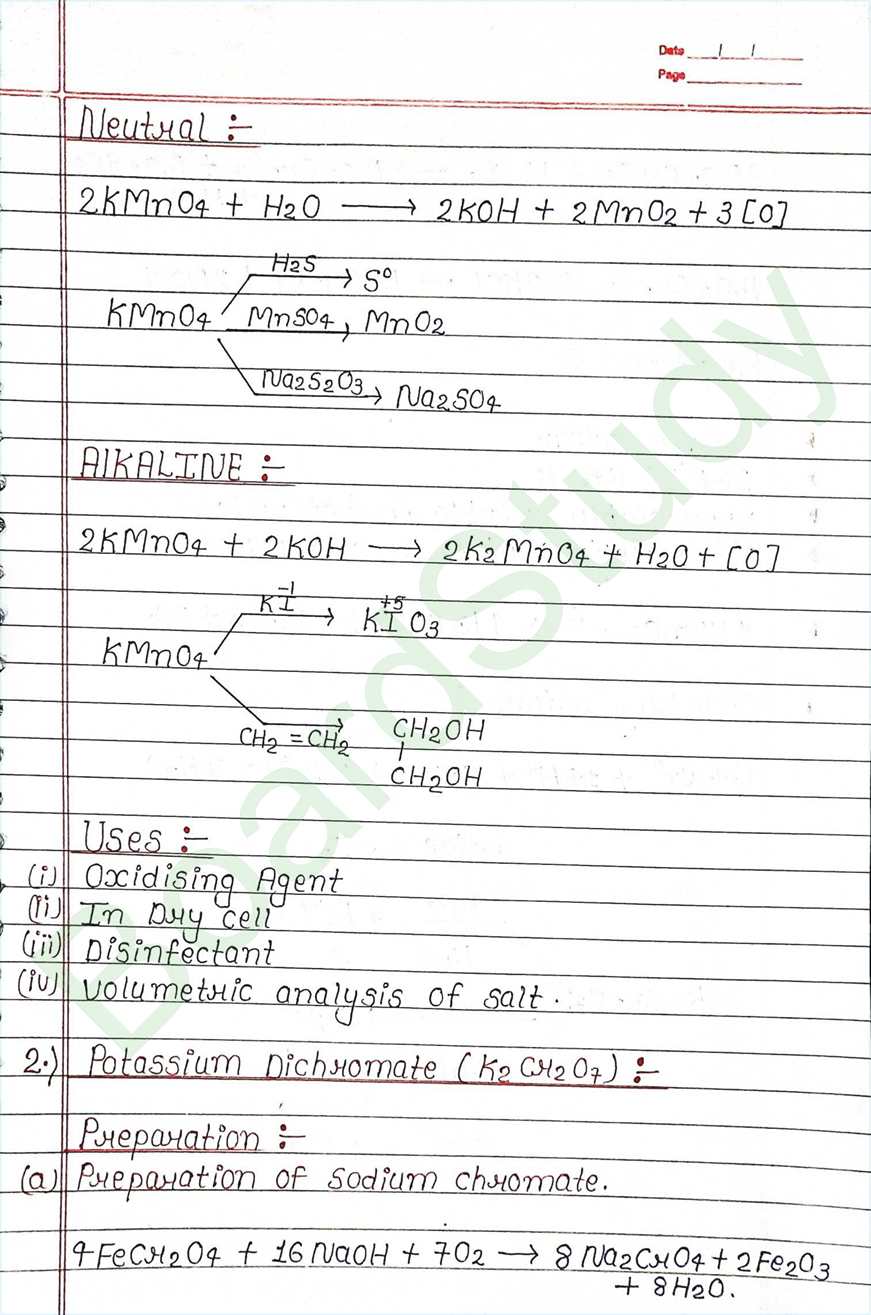 Date / /
Page
Neutral :-
2KMnO4 + H2O ⟶ 2KOH + 2MnO2 + 3[O]
H2S → S⁰
KMnO4 MnSO4 → MnO2
Na2S2O3 → Na2SO4
AlKALINE :-
2KMnO4 + 2KOH ⟶ 2K2MnO4 + H2O + [O]
KI -1 → KIO3 +5
KMnO4
CH2 = CH2 → CH2OH
CH2OH
Uses :-
(i) Oxidising Agent
(ii) In Dry cell
(iii) Disinfectant
(iv) Volumetric analysis of salt.
2.) Potassium Dichromate (K2Cr2O7) :-
Preparation :-
(a) Preparation of sodium chromate.
4FeCr2O4 + 16NaOH + 7O2 ⟶ 8Na2CrO4 + 2Fe2O3
+ 8H2O.
BoardStudy